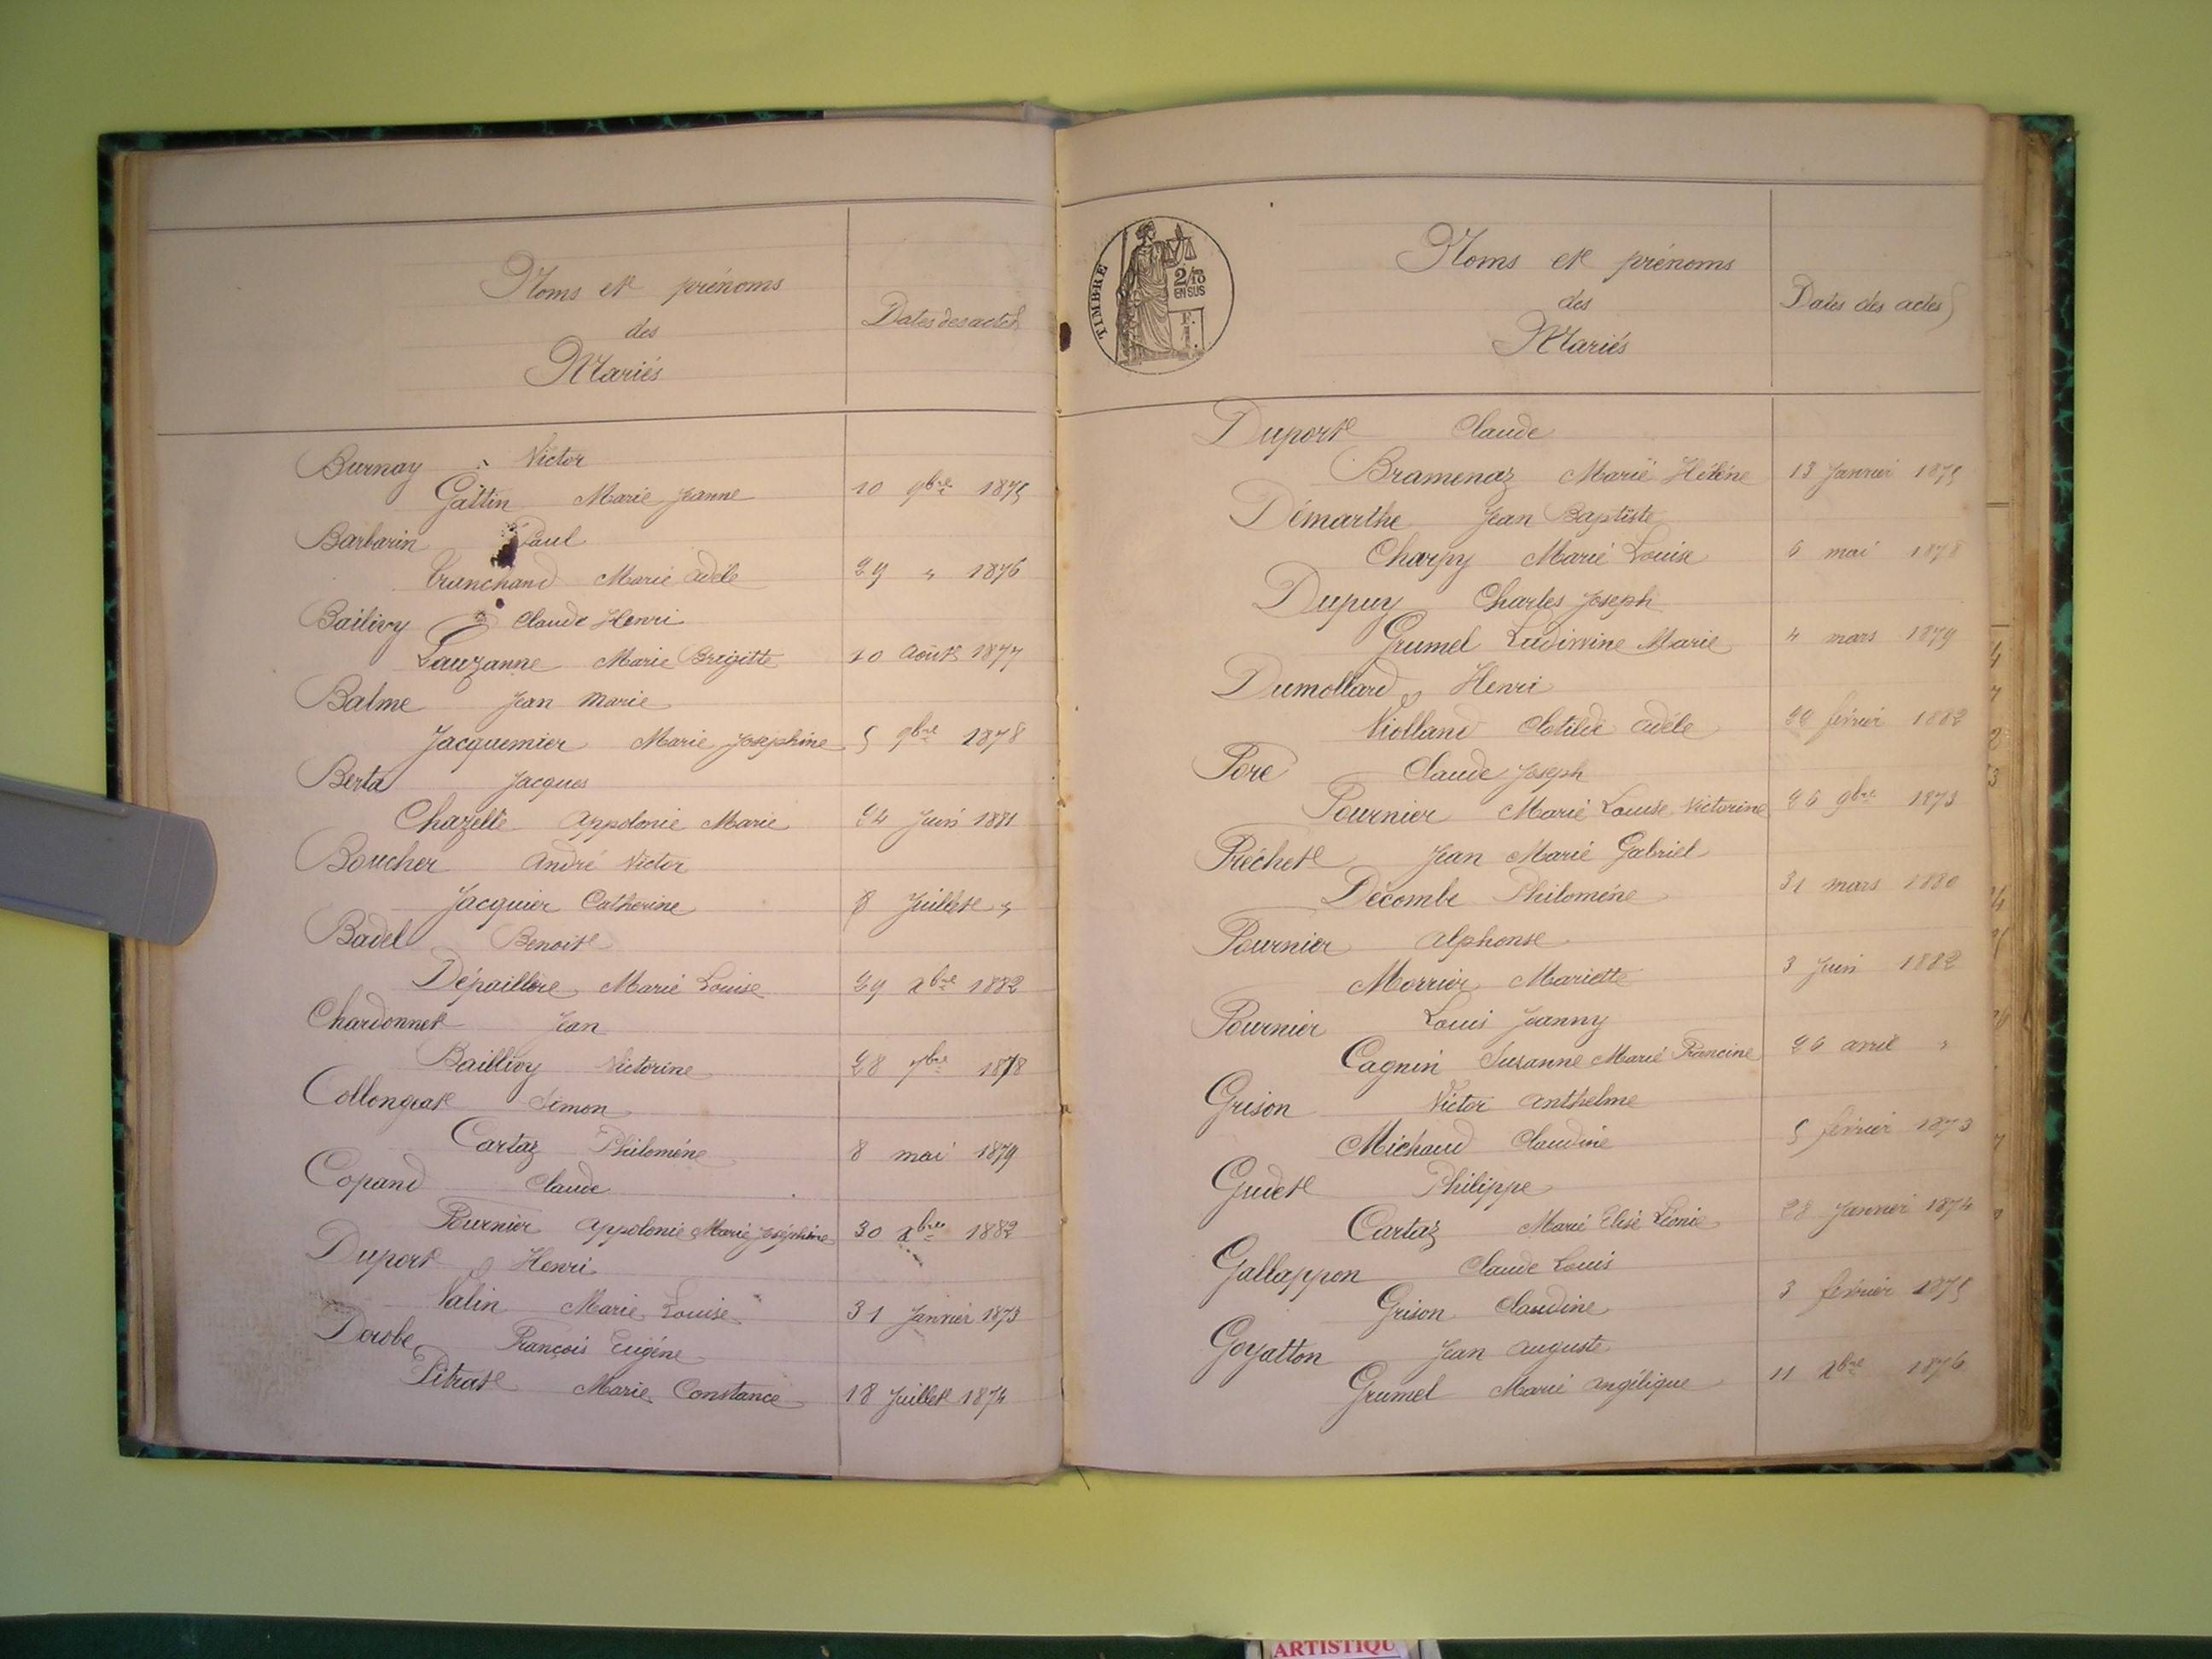 Noms et prénoms
des
Mariés
Dates des actes
Burnay Victor
Gattin Marie Jeanne 10 9bre 1875
Barbarin Paul
Trunchand Marie Adèle 29 " 1876
Bailivy Claude Henri
Lauzanne Marie Brigitte 10 Août 1877
Balme Jean Marie
Jacquemier Marie Joséphine 5 9bre 1878
Berta Jacques
Chazelle Appolonie Marie 24 Juin 1881
Boucher André Victor
Jacquier Catherine 8 Juillet "
Badel Benoit
Dépaillère Marie Louise 29 xbre 1882
Chardonnet Jean
Baillivy Victorine 28 7bre 1878
Collongeat Simon
Cartaz Philomène 8 mai 1879
Copand Claude
Fournier Appolonie Marie Joséphine 30 xbre 1882
Duport Henri
Valin Marie Louise 31 Janvier 1873
Derobe François Eugène
Pitrat Marie Constance 18 Juillet 1874
TIMBRE
2/10
EN SUS
Noms et prénoms
des
Mariés
Dates des actes
Duport Claude
Bramenaz Marie Hélène 13 Janvier 1875
Démarthe Jean Baptiste
Charpy Marie Louise 6 mai 1878
Dupuy Charles Joseph
Grumel Ludivvine Marie 4 mars 1879
Dumollard Henri
Violland Clotilde Adèle 22 février 1882
Fore Claude Joseph
Fournier Marie Louise Victorine 26 9bre 1873
Fréchet Jean Marie Gabriel
Décombe Philomène 31 mars 1880
Fournier Alphonse
Morrier Mariette 3 Juin 1882
Fournier Louis Joanny
Cagnin Suzanne Marie Francine 26 avril "
Grison Victor Anthelme
Michaud Claudine 5 février 1873
Gudet Philippe
Cartaz Marie Elisé Léonie 28 Janvier 1874
Gallappon Claude Louis
Grison Claudine 3 février 1875
Goyatton Jean Auguste
Grumel Marie Angélique 11 xbre 1876
ARTISTIQU